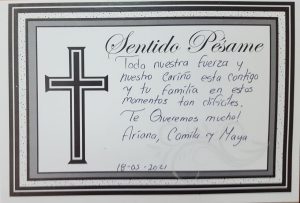 Sentido Pésame
Toda nuestra fuerza y
nuestro cariño esta contigo
y tu familia en estos
momentos tan dificiles.
Te Queremos mucho!
Ariana, Camila y Maya
18-03-2021